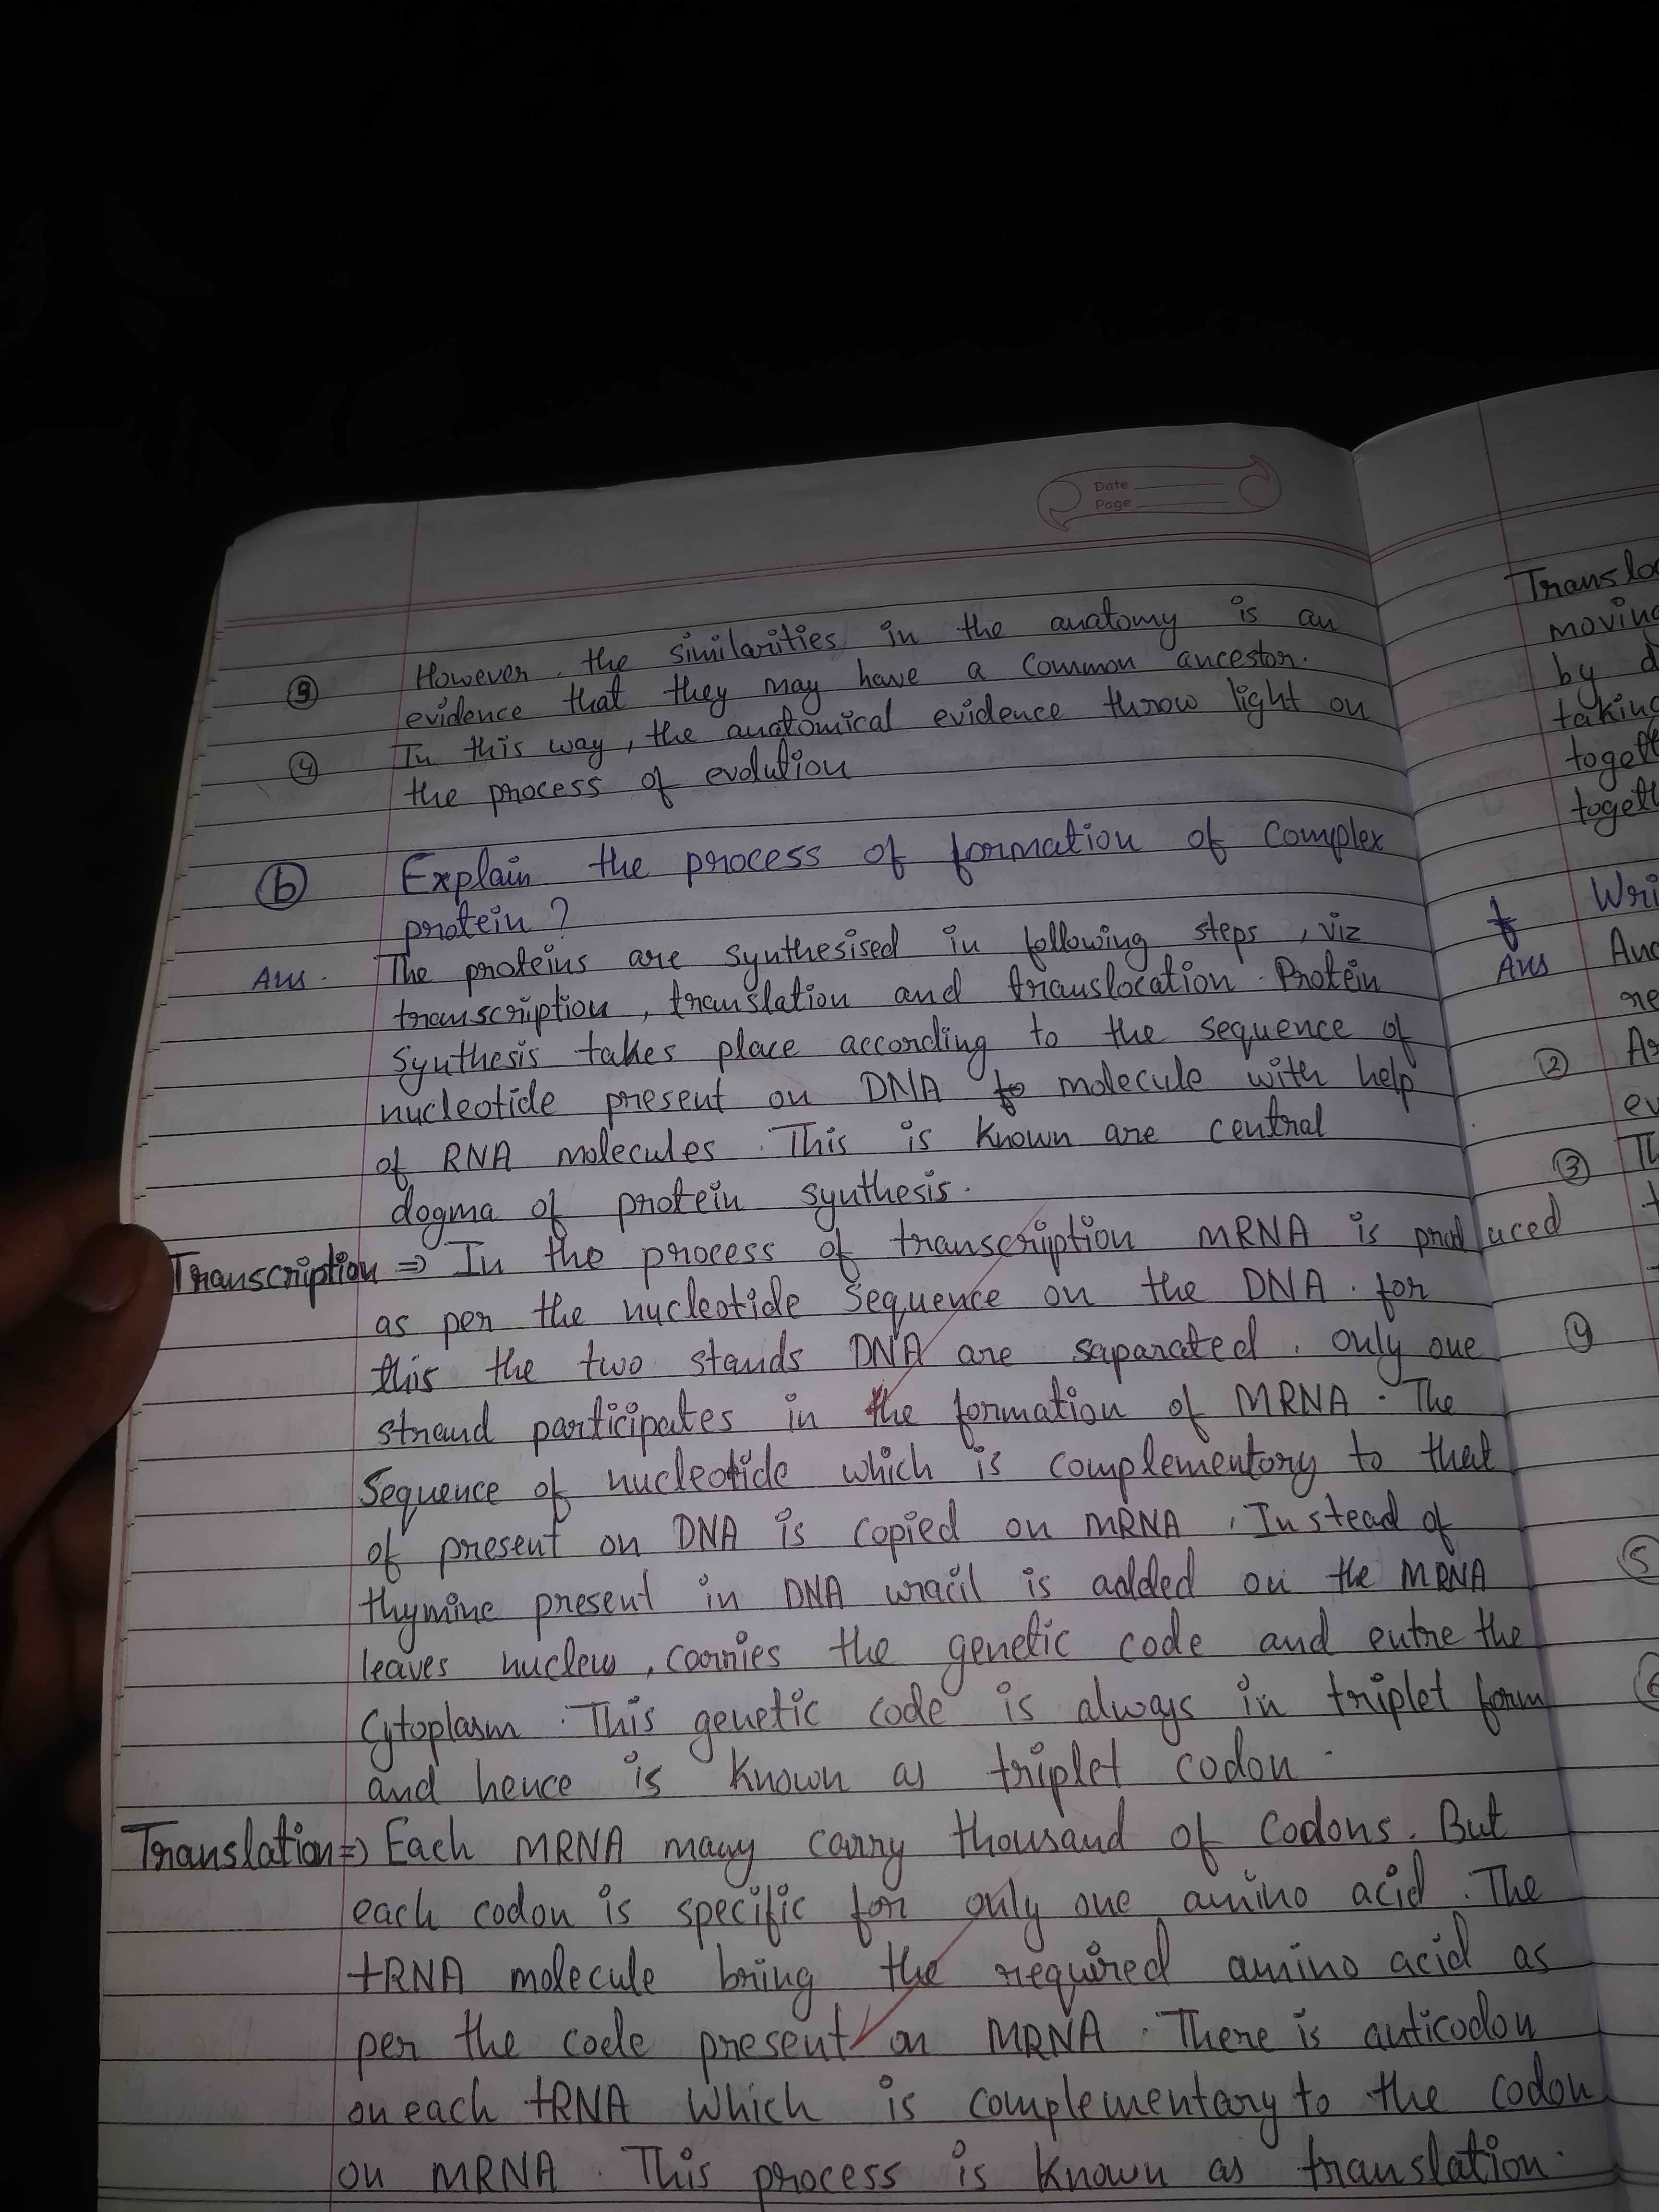 Date
Page
③ However, the similarities in the anatomy is an
evidence that they may have a common ancestor.
④ In this way, the anatomical evidence throw light on
the process of evolution
ⓑ Explain the process of formation of complex
protein?
Ans. The proteins are synthesised in following steps, viz
transcription, translation and translocation. Protein
synthesis takes place according to the sequence of
nucleotide present on DNA to molecule with help
of RNA molecules. This is known are central
dogma of protein synthesis.
Transcription ⇒ In the process of transcription MRNA is produced
as per the nucleotide sequence on the DNA. for
this the two stands DNA are saparated. only one
strand participates in the formation of MRNA. The
sequence of nucleotide which is complementory to that
of present on DNA is copied on MRNA, Instead of
thymine present in DNA wracil is added on the MRNA
leaves nucleus, carries the genetic code and entre the
Cytoplasm. This genetic code is always in triplet form
and hence is known as triplet codon.
Translation ⇒ Each MRNA many carry thousand of codons. But
each codon is specific for only one amino acid. The
tRNA molecule bring the required amino acid as
per the code present on MRNA. There is anticodon
on each tRNA which is complementary to the codon
on MRNA. This process is known as translation.
Translo
moving
by d
taking
togeth
togeth
f Wri
Ans And
re
② As
ev
③ Th
④
⑤